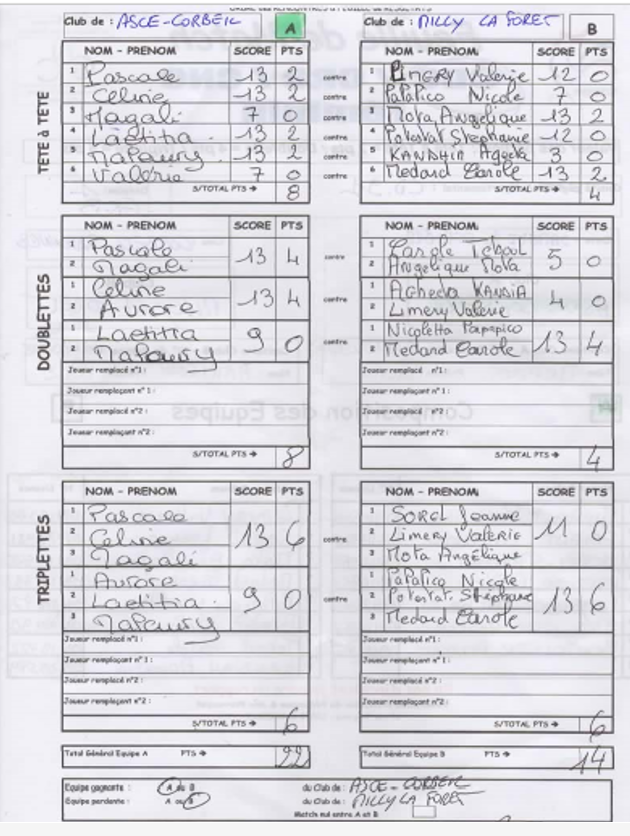 Club de : ASCE-CORBEIL A
Club de : MILLY LA FORET B
TETE à TETE
NOM - PRENOM SCORE PTS NOM - PRENOM SCORE PTS
1 Pascale 13 2 contre 1 LIMERY Valerie 12 0
2 Celine 13 2 contre 2 Papapico Nicole 7 0
3 Magali 7 0 contre 3 Mota Angelique 13 2
4 Laetitia 13 2 contre 4 Potestat Stephanie 12 0
5 Mafaury 13 2 contre 5 KANDHIA Agueda 3 0
6 Valérie 7 0 contre 6 Medard Carole 13 2
S/TOTAL PTS → 8 S/TOTAL PTS → 4
DOUBLETTES
NOM - PRENOM SCORE PTS NOM - PRENOM SCORE PTS
1 Pascale 13 4 contre 1 Carole 5 0
2 Magali 2 Angelique Mota
1 Celine 13 4 contre 1 KANDIA 4 0
2 Aurore 2 Limery Valerie
1 Laetitia 9 0 contre 1 Nicoletta Papapico 13 4
2 Mafaury 2 Medard Carole
Joueur remplacé n°1 : Joueur remplacé n°1 :
Joueur remplaçant n°1 : Joueur remplaçant n°1 :
Joueur remplacé n°2 : Joueur remplacé n°2 :
Joueur remplaçant n°2 : Joueur remplaçant n°2 :
S/TOTAL PTS → 8 S/TOTAL PTS → 4
TRIPLETTES
NOM - PRENOM SCORE PTS NOM - PRENOM SCORE PTS
1 Pascale 1 SOREL Jeanne
2 Celine 13 6 contre 2 Limery Valerie 11 0
3 Magali 3 Mota Angélique
1 Aurore 1 Papapico Nicole
2 Laetitia 9 0 contre 2 Potestat Stéphane 13 6
3 Mafaury 3 Medard Carole
Joueur remplacé n°1 : Joueur remplacé n°1 :
Joueur remplaçant n°1 : Joueur remplaçant n°1 :
Joueur remplacé n°2 : Joueur remplacé n°2 :
Joueur remplaçant n°2 : Joueur remplaçant n°2 :
S/TOTAL PTS → 6 S/TOTAL PTS → 6
Total Général Equipe A PTS → 22 Total Général Equipe B PTS → 14
Equipe gagnante : A ou B du Club de : ASCE - CORBEIL
Equipe perdante : A ou B du Club de : MILLY LA FORET
Match nul entre A et B